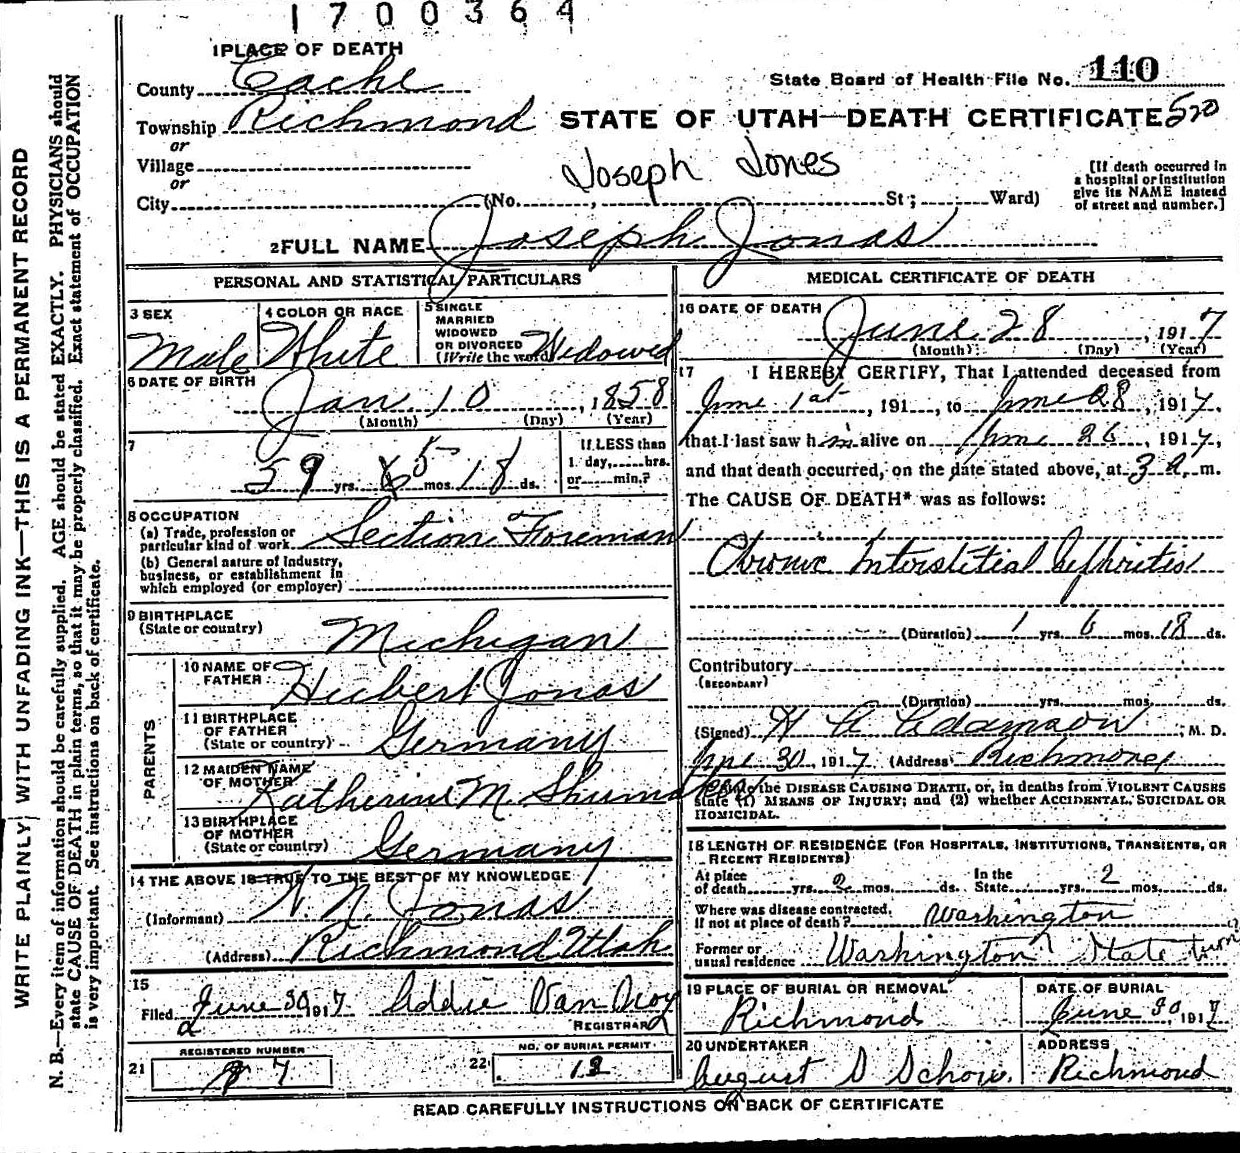 1700364
1 PLACE OF DEATH
County Cache
State Board of Health File No. 110
Township Richmond
STATE OF UTAH—DEATH CERTIFICATE 520
or
Village
or
Joseph Jones
[If death occurred in
a hospital or institution
give its NAME instead
of street and number.]
City (No. , St; Ward)
2 FULL NAME Joseph Jonas
PERSONAL AND STATISTICAL PARTICULARS
3 SEX
Male
4 COLOR OR RACE
White
5 SINGLE
MARRIED
WIDOWED
OR DIVORCED
(Write the word) Widowed
6 DATE OF BIRTH
Jan. 10, 1858
(Month) (Day) (Year)
7
59 yrs. 5 mos. 18 ds.
If LESS than
1 day, hrs.
or min.?
8 OCCUPATION
(a) Trade, profession or
particular kind of work Section Foreman
(b) General nature of Industry,
business, or establishment in
which employed (or employer)
9 BIRTHPLACE
(State or country) Michigan
PARENTS
10 NAME OF
FATHER Hubert Jonas
11 BIRTHPLACE
OF FATHER
(State or country) Germany
12 MAIDEN NAME
OF MOTHER Katherine M.
13 BIRTHPLACE
OF MOTHER
(State or country) Germany
14 THE ABOVE IS TRUE TO THE BEST OF MY KNOWLEDGE
(Informant) Jonas
(Address) Richmond Utah
15
Filed June 30 1917 Addie Van
REGISTRAR
REGISTERED NUMBER
21 7
NO. OF BURIAL PERMIT
22
MEDICAL CERTIFICATE OF DEATH
16 DATE OF DEATH
June 28, 1917
(Month) (Day) (Year)
17 I HEREBY CERTIFY, That I attended deceased from
June 1st, 191 , to June 28, 1917,
that I last saw him alive on June 26, 1917,
and that death occurred, on the date stated above, at 3 a. m.
The CAUSE OF DEATH* was as follows:
Chronic Interstitial Nephritis
(Duration) 1 yrs. 6 mos. 18 ds.
Contributory
(SECONDARY)
(Duration) yrs. mos. ds.
(Signed) H A Adamson, M. D.
June 30, 1917 (Address) Richmond
the DISEASE CAUSING DEATH, or, in deaths from VIOLENT CAUSES
state (1) MEANS OF INJURY; and (2) whether ACCIDENTAL, SUICIDAL OR
HOMICIDAL.
18 LENGTH OF RESIDENCE (FOR HOSPITALS, INSTITUTIONS, TRANSIENTS, OR
RECENT RESIDENTS)
At place
of death yrs. 2 mos. ds.
In the
State yrs. 2 mos. ds.
Where was disease contracted,
if not at place of death? Washington
Former or
usual residence Washington State
19 PLACE OF BURIAL OR REMOVAL
Richmond
DATE OF BURIAL
June 30, 1917
20 UNDERTAKER
August S Schow.
ADDRESS
Richmond
READ CAREFULLY INSTRUCTIONS ON BACK OF CERTIFICATE
WRITE PLAINLY WITH UNFADING INK—THIS IS A PERMANENT RECORD
N. B.—Every item of information should be carefully supplied. AGE should be stated EXACTLY. PHYSICIANS should
state CAUSE OF DEATH in plain terms, so that it may be properly classified. Exact statement of OCCUPATION
is very important. See instructions on back of certificate.